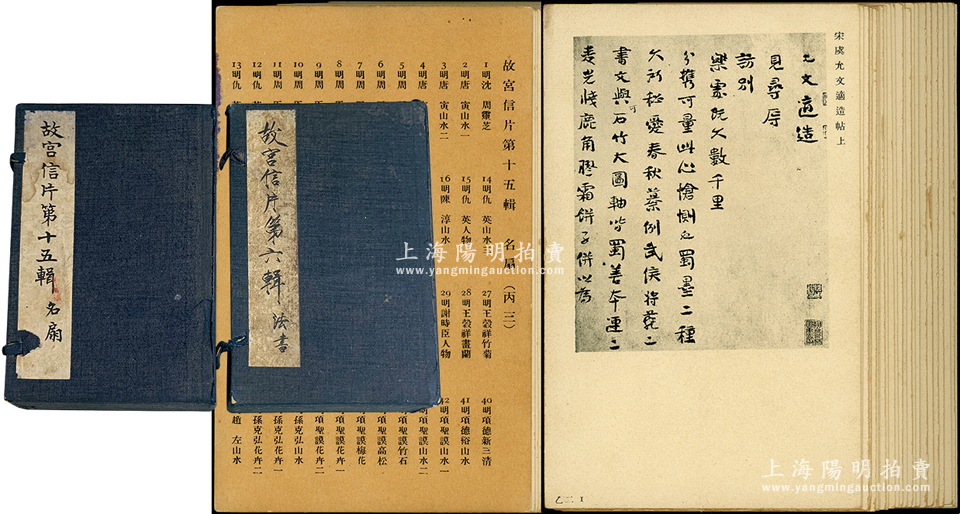 故宮信片第十五輯 名扇
故宮信片第六輯 法書
故宮信片第十五輯 名扇(丙三)
1明沈 周靈芝
2明唐 寅山水一
3明唐 寅山水二
4明唐
5明周
6明周
7明周
8明周
10明周
11明周
12明仇
13明仇
14明仇 英山水
15明仇 英人物
16明陳 淳山水
27明王穀祥竹菊
28明王穀祥畫蘭
29明謝時臣人物
40明項德新三清
41明項德裕山水
42明項聖謨山水一
項聖謨山水二
項聖謨竹石
項聖謨高松
項聖謨梅花
項聖謨花卉一
項聖謨花卉二
孫克弘山水
孫克弘花卉一
孫克弘花卉二
趙 左山水
宋虞允文適造帖上
允文適造
見尋辱
訪別
樂處既久數千里
分攜可量此心愴惻也蜀墨二種
久所秘愛春秋纂例武侯將苑二
書文與可石竹大圖軸皆蜀善本運二
麦光牋鹿角膠霜餅子併以為
乙二 1
上海陽明拍賣
www.yangmingauction.com
上海陽明拍賣
www.yangmingauction.com